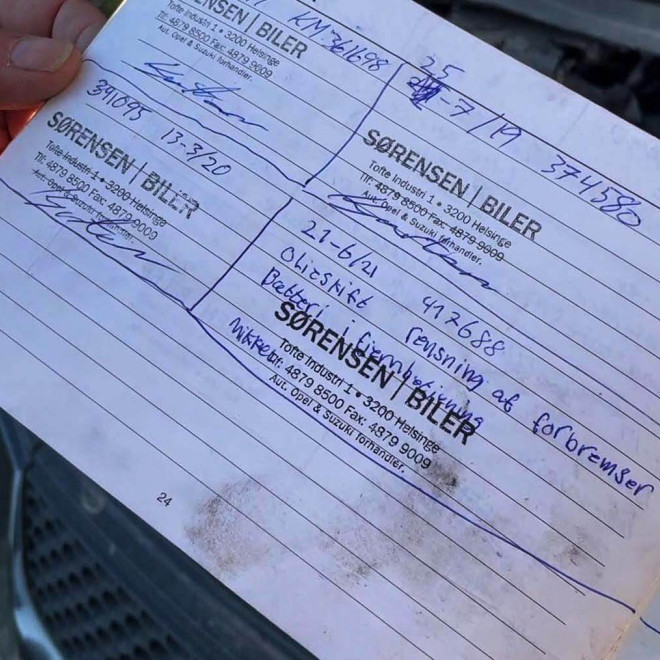 KM 361698
SØRENSEN | BILER
Tofte Industri 1 • 3200 Helsinge
Tlf: 4879 8500 Fax: 4879 9009
Aut. Opel & Suzuki forhandler.
25
-7/19 374580
SØRENSEN | BILER
Tofte Industri 1 • 3200 Helsinge
Tlf: 4879 8500 Fax: 4879 9009
Aut. Opel & Suzuki forhandler.
391095 13-3/20
SØRENSEN | BILER
Tofte Industri 1 • 3200 Helsinge
Tlf: 4879 8500 Fax: 4879 9009
Aut. Opel & Suzuki forhandler.
21-6/21 412688
Olieskift rensning af forbremser
Batteri i fjernbetjening
SØRENSEN | BILER
Tofte Industri 1 • 3200 Helsinge
Tlf: 4879 8500 Fax: 4879 9009
Aut. Opel & Suzuki forhandler.
24